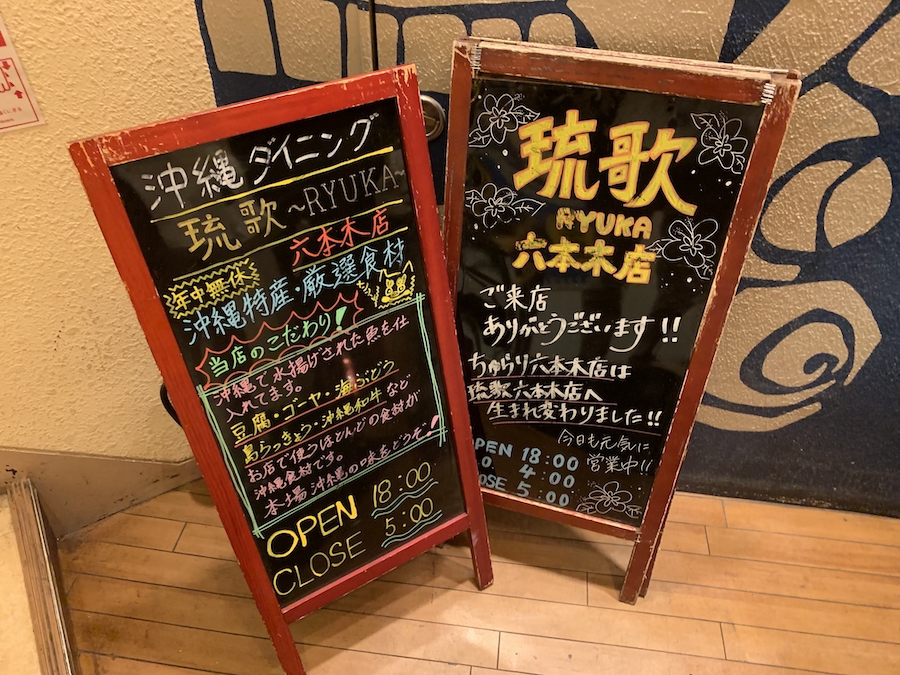 沖縄ダイニング
琉歌 ～RYUKA～
六本木店
年中無休
沖縄特産・厳選食材
当店のこだわり！
沖縄で水揚げされた魚を仕
入れてます。
豆腐・ゴーヤ・海ぶどう
島らっきょう・沖縄和牛など
お店で使うほとんどの食材が
沖縄食材です。
本場沖縄の味をどうぞ！
OPEN 18:00
CLOSE 5:00
琉歌
RYUKA
六本木店
ご来店
ありがとうございます!!
ちゅらり六本木店は
琉歌六本木店へ
生まれ変わりました!!
今日も元気に
営業中!!
OPEN 18:00
4:00
CLOSE 5:00